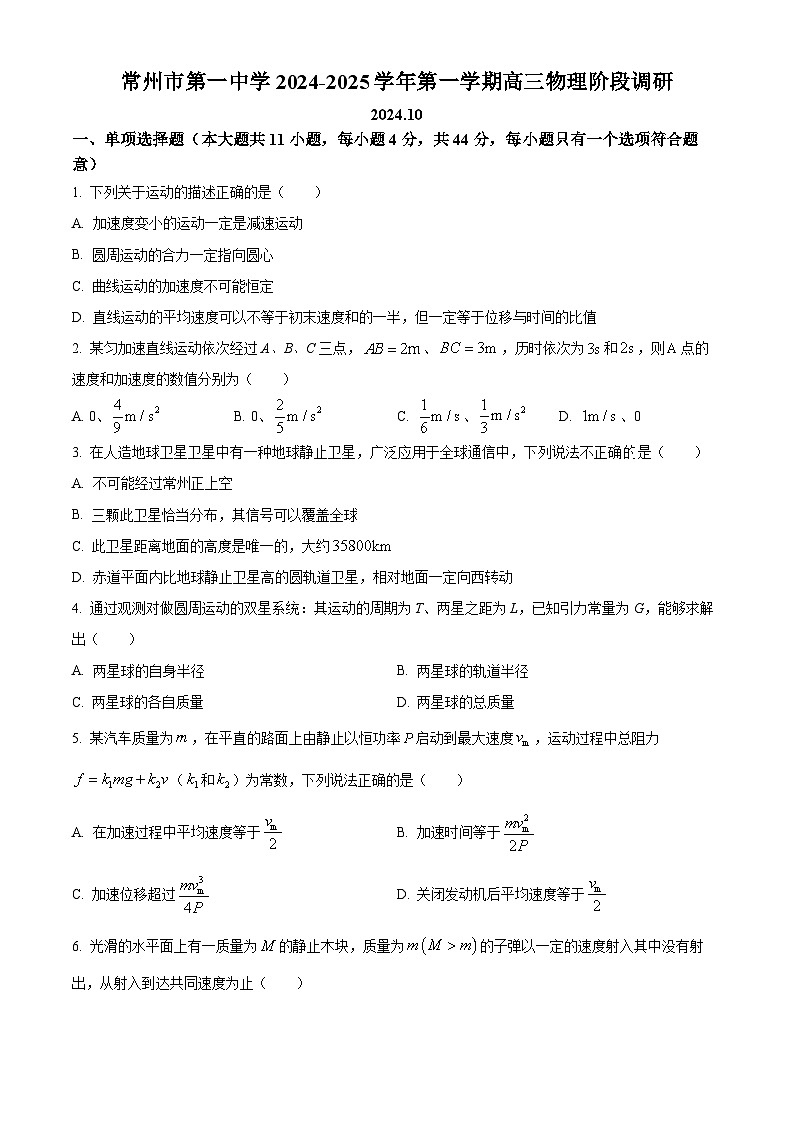 常州市第一中学 2024-2025 学年第一学期高三物理阶段调研
2024.10
一、单项选择题（本大题共 11 小题，每小题 4 分，共 44 分，每小题只有一个选项符合题
意）
1. 下列关于运动的描述正确的是（　　）
A. 加速度变小的运动一定是减速运动
B. 圆周运动的合力一定指向圆心
C. 曲线运动的加速度不可能恒定
D. 直线运动的平均速度可以不等于初末速度和的一半，但一定等于位移与时间的比值
2. 某匀加速直线运动依次经过 A、B、C 三点，AB = 2m 、BC = 3m ，历时依次为 3s 和 2s ，则 A 点的
速度和加速度的数值分别为（　　）
A. 0、4/9 m / s²　　B. 0、2/5 m / s²　　C. 1/6 m / s 、1/3 m / s²　　D. 1m / s 、0
3. 在人造地球卫星卫星中有一种地球静止卫星，广泛应用于全球通信中，下列说法不正确的是（　　）
A. 不可能经过常州正上空
B. 三颗此卫星恰当分布，其信号可以覆盖全球
C. 此卫星距离地面的高度是唯一的，大约 35800km
D. 赤道平面内比地球静止卫星高的圆轨道卫星，相对地面一定向西转动
4. 通过观测对做圆周运动的双星系统：其运动的周期为 T、两星之距为 L，已知引力常量为 G，能够求解
出（　　）
A. 两星球的自身半径　　B. 两星球的轨道半径
C. 两星球的各自质量　　D. 两星球的总质量
5. 某汽车质量为 m ，在平直的路面上由静止以恒功率 P 启动到最大速度 vₘ ，运动过程中总阻力
f = k₁mg + k₂v（ k₁ 和 k₂ ）为常数，下列说法正确的是（　　）
A. 在加速过程中平均速度等于 vₘ/2　　B. 加速时间等于 mvₘ²/2P
C. 加速位移超过 mvₘ³/4P　　D. 关闭发动机后平均速度等于 vₘ/2
6. 光滑的水平面上有一质量为 M 的静止木块，质量为 m ( M > m ) 的子弹以一定的速度射入其中没有射
出，从射入到达共同速度为止（　　）